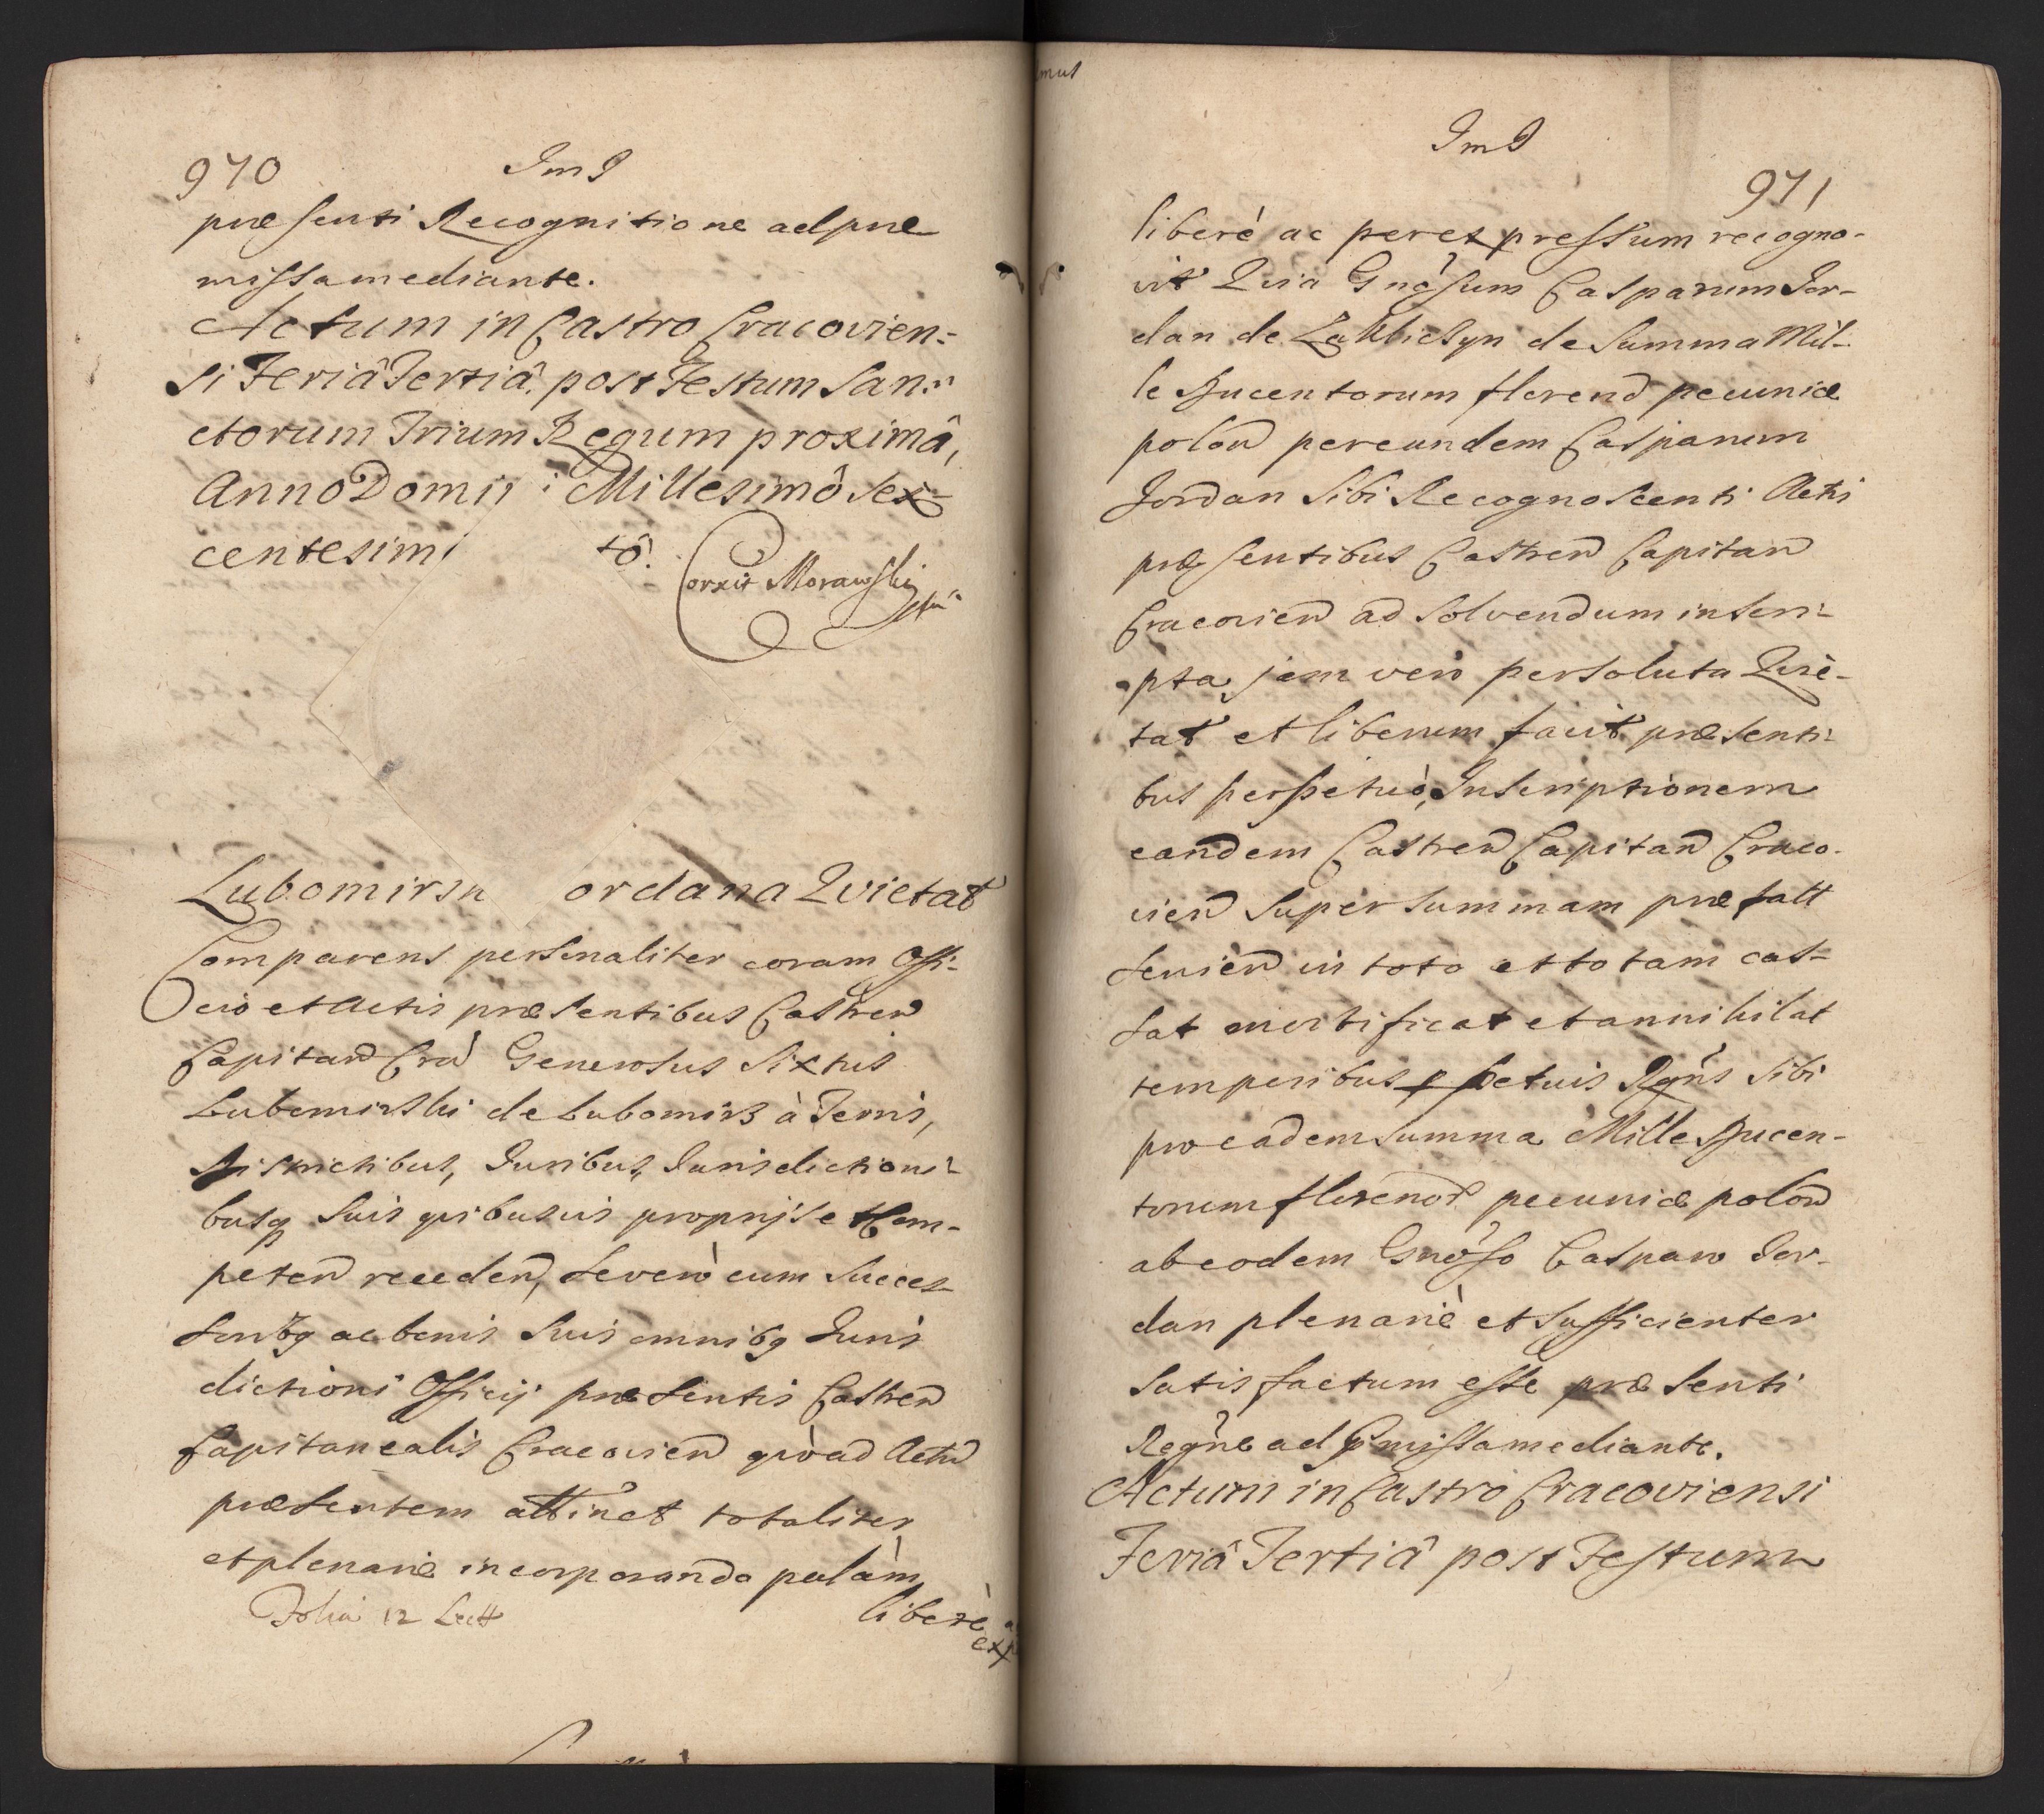 970
Im J
præsenti Recognitione ad præ
missa mediante.
Actum in Castro Cracovien:
si Feriâ Tertiâ. post Festum San:
ctorum Trium Regum proximâ,
Anno Domi i Millesimô sex-
centesim tô.
Corxit Morawski
Lubomirsk ordana Quietat
Comparens personaliter coram Offi-
cio et Actis præsentibus Castren
Capitan Cra Generosus Sixtus
Lubomirski de Lubomirz à Terris,
Districtibus, Juribus, Jurisdictioni-
busq suis quibusvis proprijs et Com-
peten receden, se verò cum succes-
soribq ac bonis suis omnibq Juris
dictioni Officij præsentis Castren
Capitanealis Cracovien quoad Actū
præsentem attinet totaliter
et plenarie incorporando palàm
Folia 12 Lectt
liberè
971
Im J
liberè ac per expressum recogno-
vit Quia Gnosum Casparum Jor-
dan de Zakliczyn de summa Mil-
le Ducentorum floreno pecuniæ
polon per eundem Casparum
Jordan sibi Recognoscenti Actis
præsentibus Castren Capitan
Cracovien ad solvendum inscri-
pta, jam vero persoluta Quie-
tat et liberum facit præsenti-
bus perpetuò, Inscriptionem
eandem Castren Capitan Craco-
vien super summam præfatt
servien in toto et totam cas-
sat mortificat et annihilat
temporibus ppetuis Rgns sibi
pro eadem summa Mille Ducen-
torum florenor pecuniæ polon
ab eodem Gnoso Casparo Jor-
dan plenariè et sufficienter
satisfactum esse præsenti
Regne ad pmissa mediante.
Actum in Castro Cracoviensi
Feriâ Tertiâ post Festum